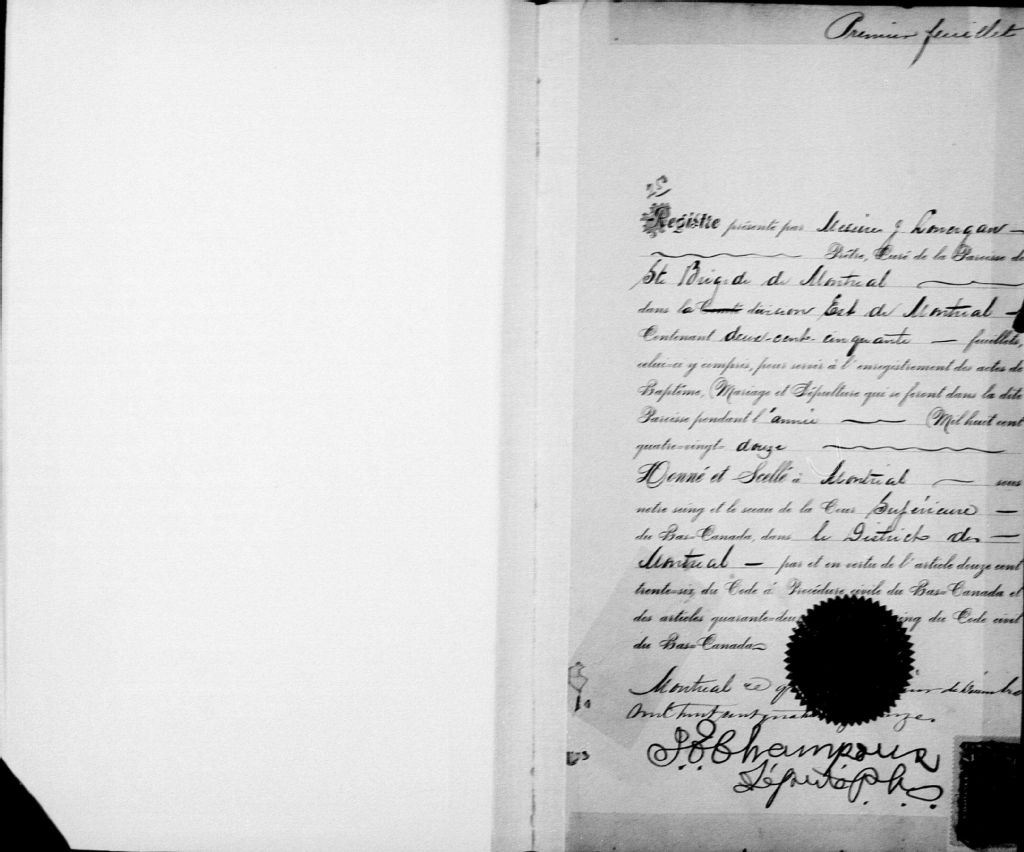 Premier feuillet
Registre présenté par Messire J Lonergan
Prêtre, Curé de la Paroisse de
Ste Brigide de Montreal
dans la Comté division Est de Montreal
Contenant deux-cent-cinquante feuillets,
celui-ci y compris, pour servir à l'enregistrement des actes de
Baptême, Mariage et Sépulture qui se feront dans la dite
Paroisse pendant l'année Mil huit cent
quatre-vingt-douze
Donné et Scellé à Montréal sous
notre seing et le sceau de la Cour Supérieure
du Bas-Canada, dans le District de
Montreal par et en vertu de l'article douze cent
trente-six du Code de Procédure civile du Bas-Canada et
des articles quarante-deux cinq du Code civil
du Bas-Canada
Montreal ce jour de Décembre
mil huit cent onze.
Champoux
Député P. C. S.